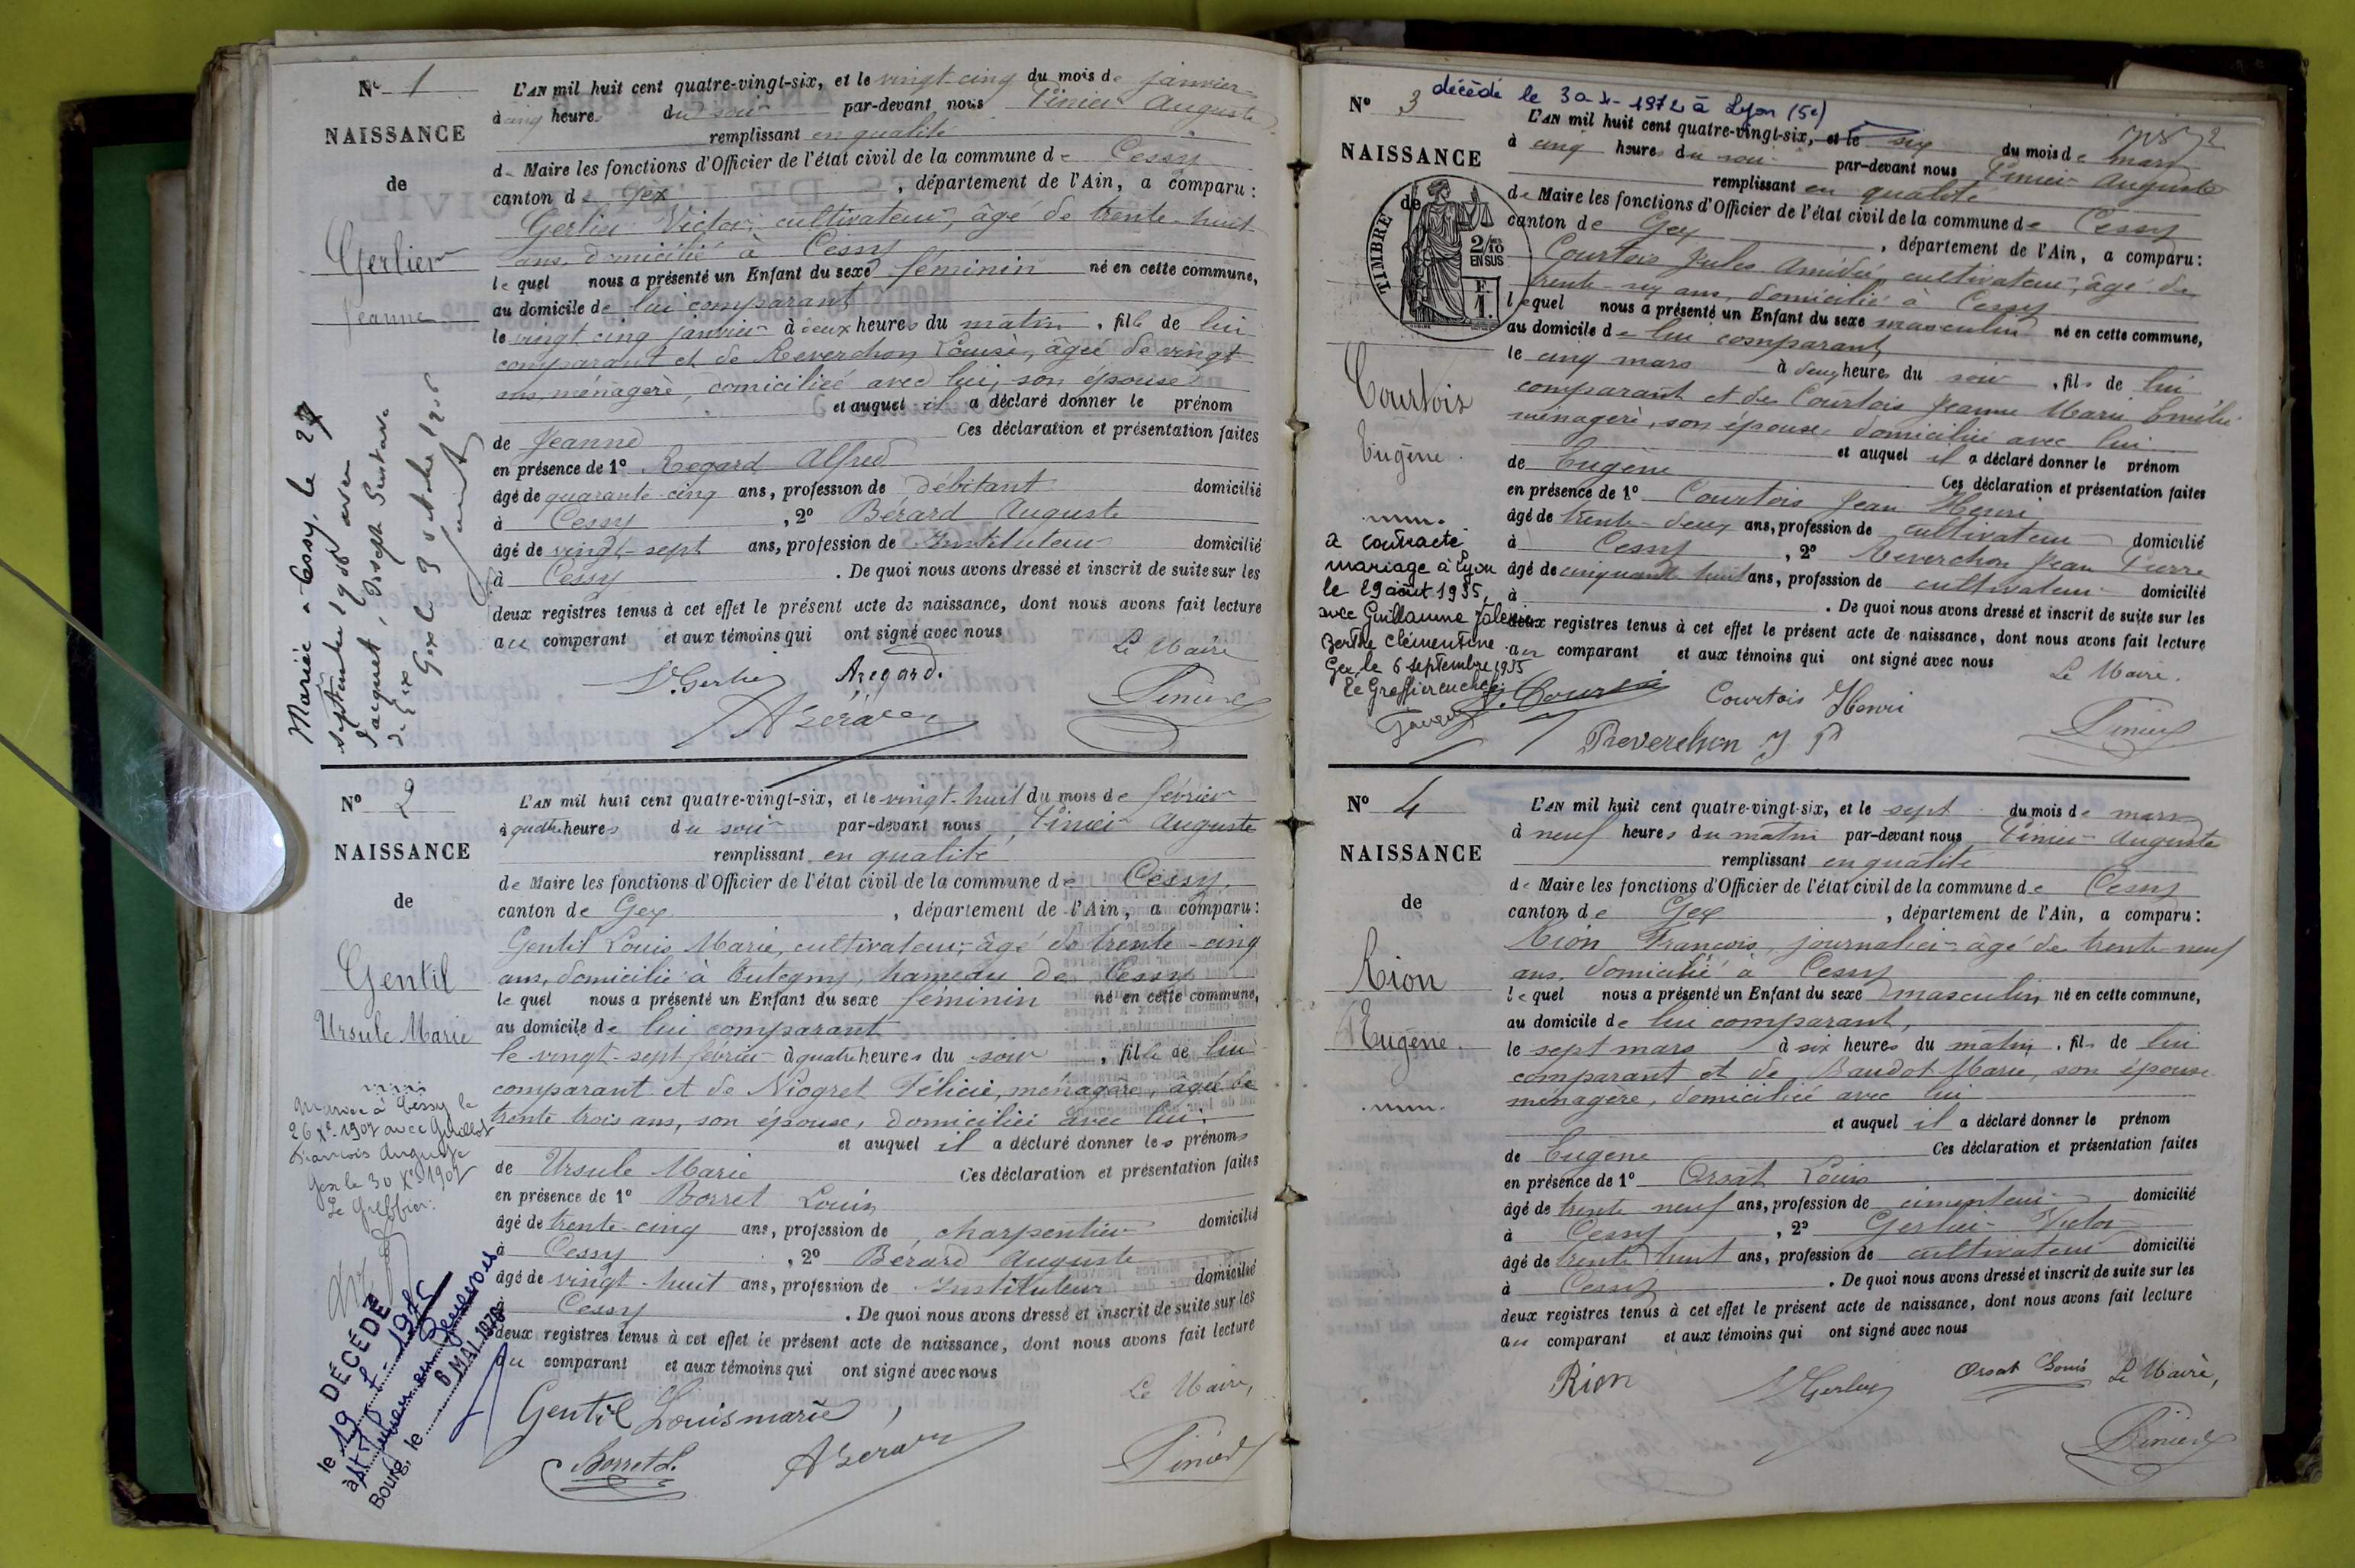 N° 1
NAISSANCE
de
Gerlier
Jeanne
L'AN mil huit cent quatre-vingt-six, et le vingt-cinq du mois de janvier
à cinq heures du soir par-devant nous Pinier Auguste
remplissant en qualité
de Maire les fonctions d'Officier de l'état civil de la commune de Cessy
canton de Gex, département de l'Ain, a comparu :
Gerlier Victor, cultivateur, âgé de trente-huit
ans, domicilié à Cessy
lequel nous a présenté un Enfant du sexe féminin né en cette commune,
au domicile de lui comparant
le vingt cinq janvier à deux heures du matin, fille de lui
comparant et de Reverchon Louise, âgée de vingt
ans, ménagère, domiciliée avec lui, son épouse
et auquel il a déclaré donner le prénom
de Jeanne Ces déclaration et présentation faites
en présence de 1° Regard Alfred
âgé de quarante-cinq ans, profession de débitant domicilié
à Cessy, 2° Bérard Auguste
âgé de vingt-sept ans, profession de Instituteur domicilié
à Cessy. De quoi nous avons dressé et inscrit de suite sur les
deux registres tenus à cet effet le présent acte de naissance, dont nous avons fait lecture
au comparant et aux témoins qui ont signé avec nous
Le Maire
V. Gerlier A regard.
A Bérard Pinier
Mariée à Cessy, le 27
septembre 1906 avec
Jacquet, Joseph Gustave
Gex le 3 octobre 1906
N° 2
NAISSANCE
de
Gentil
Ursule Marie
L'AN mil huit cent quatre-vingt-six, et le vingt-huit du mois de février
à quatre heures du soir par-devant nous Pinier Auguste
remplissant en qualité
de Maire les fonctions d'Officier de l'état civil de la commune de Cessy,
canton de Gex, département de l'Ain, a comparu :
Gentil Louis Marie, cultivateur, âgé de trente-cinq
ans, domicilié à Tutegny, hameau de Cessy
lequel nous a présenté un Enfant du sexe féminin né en cette commune,
au domicile de lui comparant
le vingt-sept février à quatre heures du soir, fille de lui
comparant et de Niogret Félicie, ménagère, âgée de
trente trois ans, son épouse, domiciliée avec lui.
et auquel il a déclaré donner les prénoms
de Ursule Marie Ces déclaration et présentation faites
en présence de 1° Borret Louis
âgé de trente-cinq ans, profession de charpentier domicilié
à Cessy, 2° Bérard Auguste
âgé de vingt-huit ans, profession de Instituteur domicilié
à Cessy. De quoi nous avons dressé et inscrit de suite sur les
deux registres tenus à cet effet le présent acte de naissance, dont nous avons fait lecture
au comparant et aux témoins qui ont signé avec nous
Le Maire,
Gentil Louis marie
Borret L. A Bérard Pinier
Mariée à Cessy le
26 Xbre 1907 avec Guillot
François Auguste
Gex le 30 Xbre 1907
Le Greffier:
DÉCÉDÉ
le 19
à St Julien en Genevois
Bourg, le 6 MAI 1976
N° 3
décédé le 30-X-1972 à Lyon (5e)
NAISSANCE
de
TIMBRE
2/10
EN SUS
Courtois
Eugène
L'AN mil huit cent quatre-vingt-six, et le six du mois de mars
à cinq heures du soir par-devant nous Pinier Auguste
remplissant en qualité
de Maire les fonctions d'Officier de l'état civil de la commune de Cessy
canton de Gex, département de l'Ain, a comparu :
Courtois Jules Amédée, cultivateur, âgé de
trente-six ans, domicilié à Cessy
lequel nous a présenté un Enfant du sexe masculin né en cette commune,
au domicile de lui comparant
le cinq mars à deux heures du soir, fils de lui
comparant et de Courtois Jeanne Marie Emélie
ménagère, son épouse, domiciliée avec lui
et auquel il a déclaré donner le prénom
de Eugène Ces déclaration et présentation faites
en présence de 1° Courtois Jean Henri
âgé de trente-deux ans, profession de cultivateur domicilié
à Cessy, 2° Reverchon Jean Pierre
âgé de cinquante huit ans, profession de cultivateur domicilié
à. De quoi nous avons dressé et inscrit de suite sur les
deux registres tenus à cet effet le présent acte de naissance, dont nous avons fait lecture
au comparant et aux témoins qui ont signé avec nous
Le Maire.
J. Courtois Courtois Henri
Reverchon J P Pinier
a contracté
mariage à Lyon
le 29 août 1935,
avec Guillaume
Berthe Clémentine
Gex, le 6 septembre 1935
Le Greffier en chef:
N° 4
NAISSANCE
de
Rion
Eugène
L'AN mil huit cent quatre-vingt-six, et le sept du mois de mars
à neuf heures du matin par-devant nous Pinier Auguste
remplissant en qualité
de Maire les fonctions d'Officier de l'état civil de la commune de Cessy
canton de Gex, département de l'Ain, a comparu :
Rion François, journalier, âgé de trente-neuf
ans, domicilié à Cessy
lequel nous a présenté un Enfant du sexe masculin né en cette commune,
au domicile de lui comparant,
le sept mars à six heures du matin, fils de lui
comparant et de Baudot Marie, son épouse
ménagère, domiciliée avec lui
et auquel il a déclaré donner le prénom
de Eugène Ces déclaration et présentation faites
en présence de 1° Orsat Louis
âgé de trente neuf ans, profession de cimenteur domicilié
à Cessy, 2° Gerlier Victor
âgé de trente huit ans, profession de cultivateur domicilié
à Cessy. De quoi nous avons dressé et inscrit de suite sur les
deux registres tenus à cet effet le présent acte de naissance, dont nous avons fait lecture
au comparant et aux témoins qui ont signé avec nous
Rion V Gerlier Orsat Louis Le Maire,
Pinier